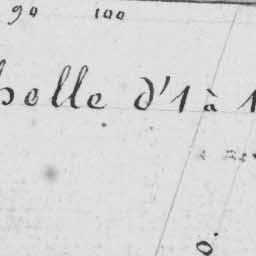 90 100
helle d'1 à 1
0.